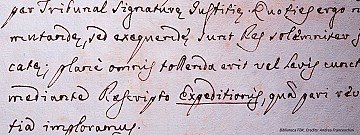 per Tribunal Signaturæ Justitiæ. Quoties ergo
mutandæ, sed exequendæ sunt Res solemniter
catæ; planè omnis tollenda erit vel levis cunct
mediante Rescripto Expeditionis, quâ pari
tia imploramus.
Biblioteca FDR, Credits: Andrea Franceschini